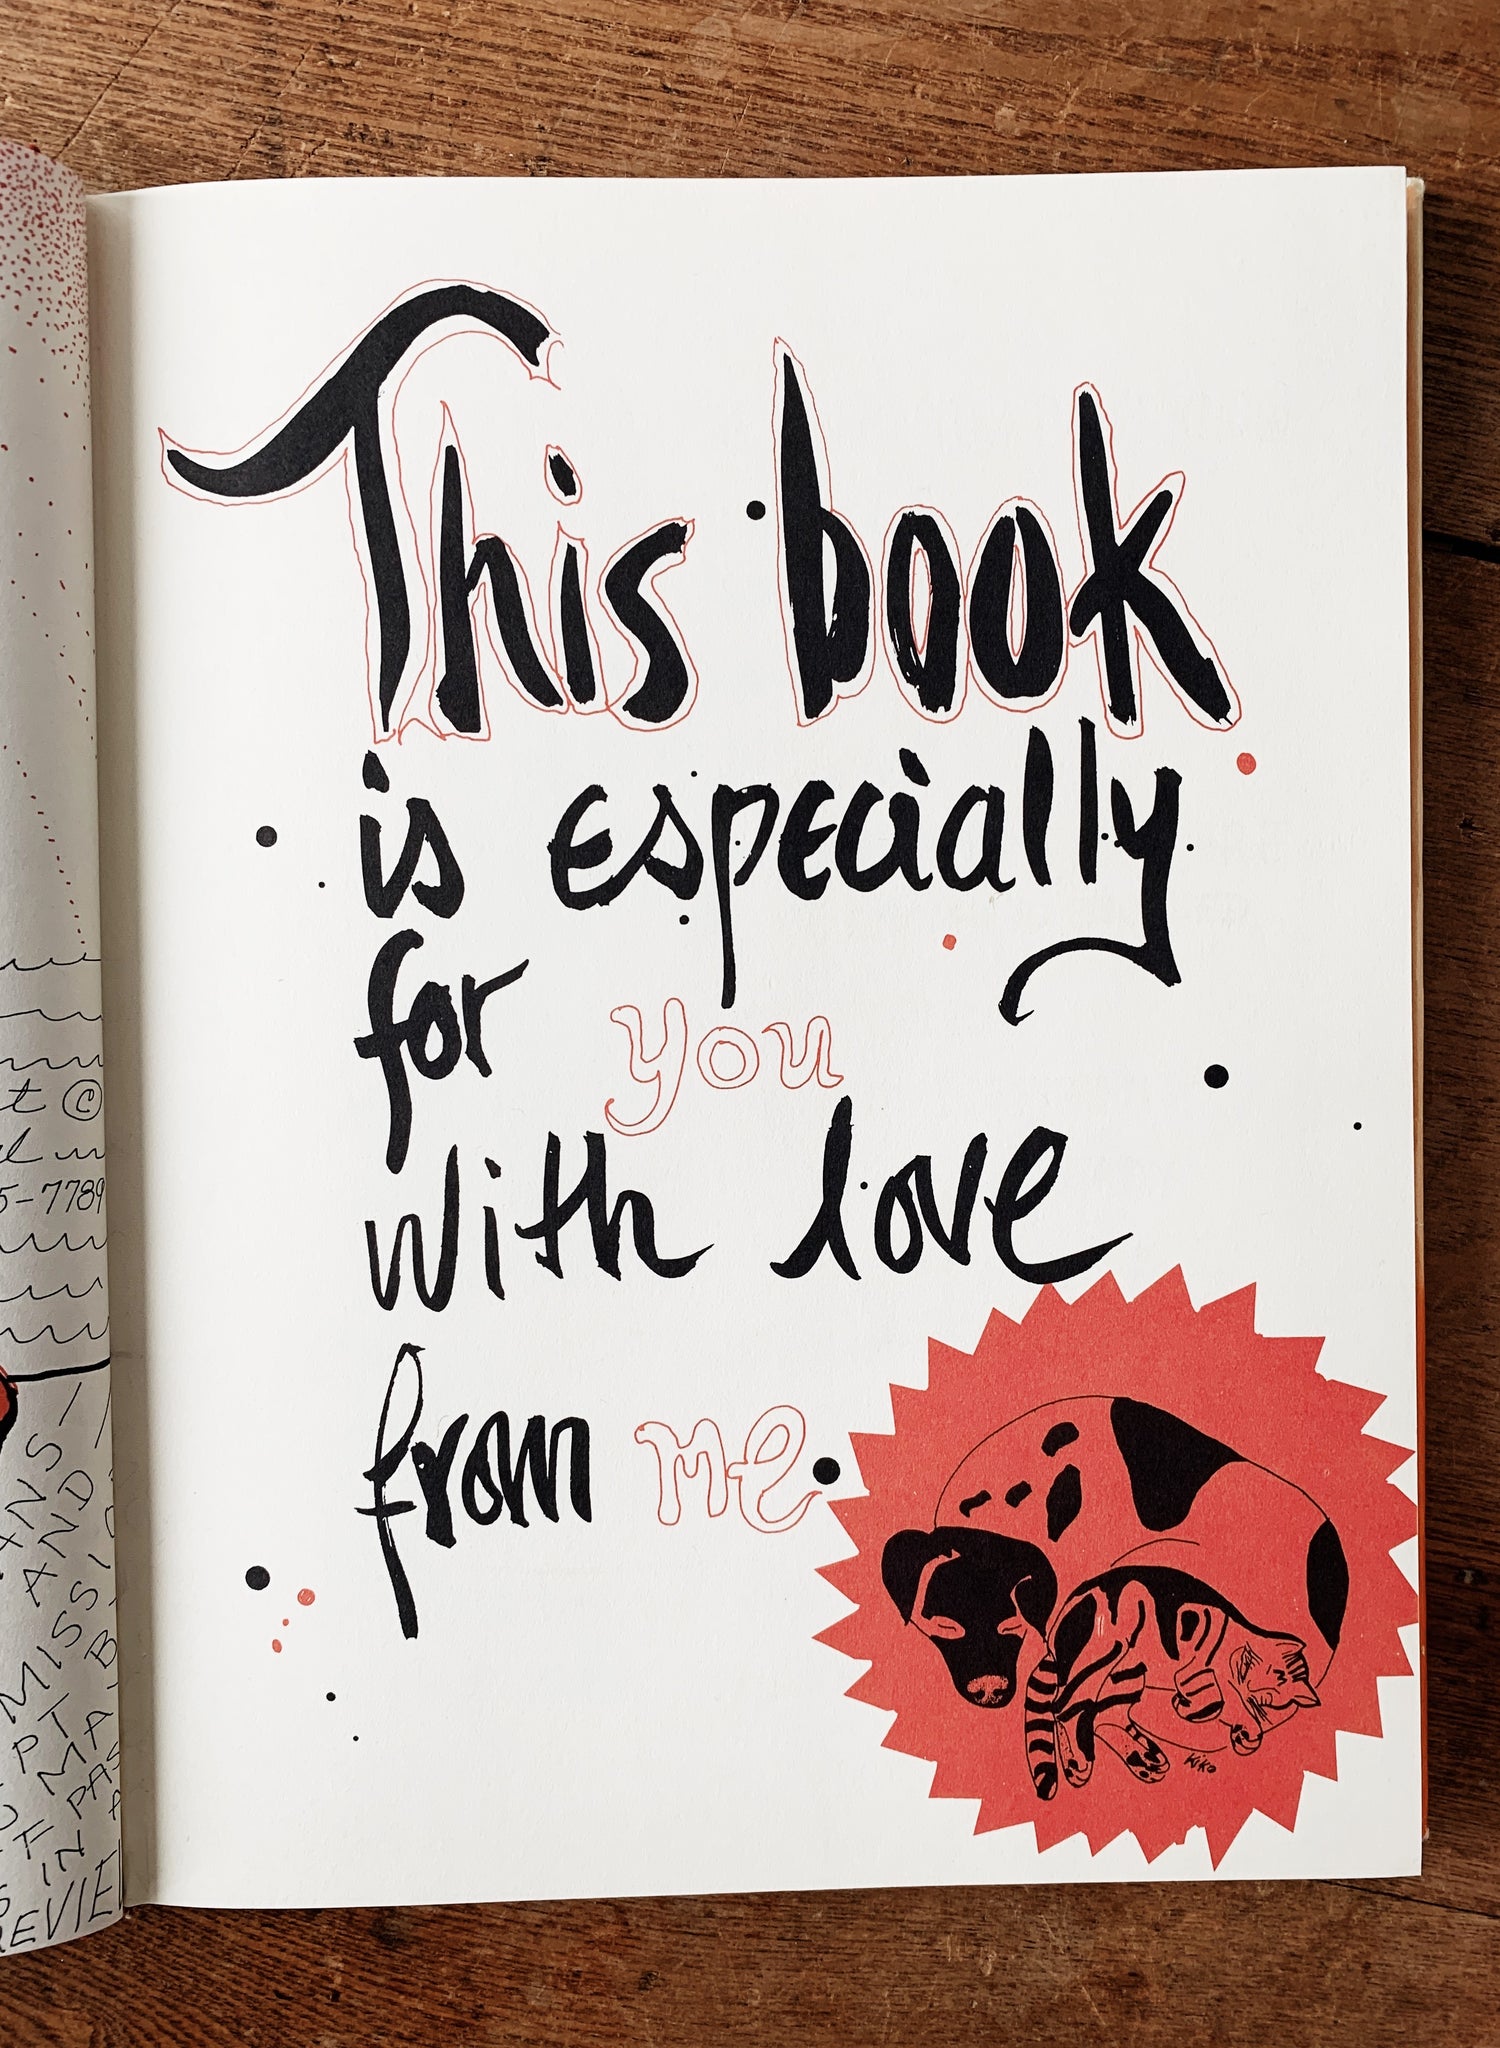 This book
is especially
for you
with love
from me
Kiko
t ©
5-7789
AND
MISSI
PT
MA
IN PAS
REVIE